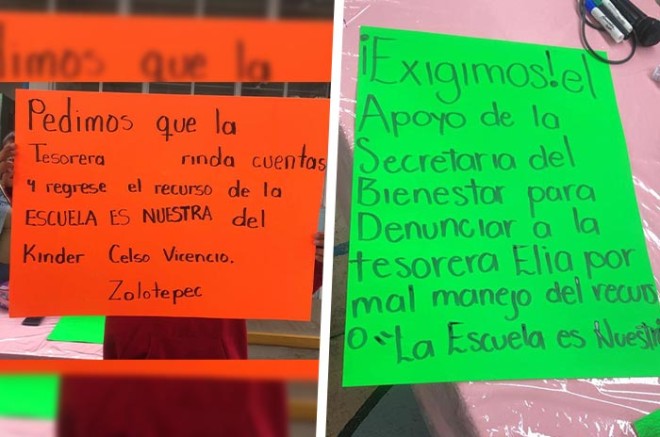 limos que la
Pedimos que la
Tesorera rinda cuentas
y regrese el recurso de la
ESCUELA ES NUESTRA del
Kinder Celso Vicencio.
Zolotepec
¡Exigimos! el
Apoyo de la
Secretaria del
Bienestar para
Denunciar a la
tesorera Elia por
mal manejo del recurs
o "La Escuela es Nuestr